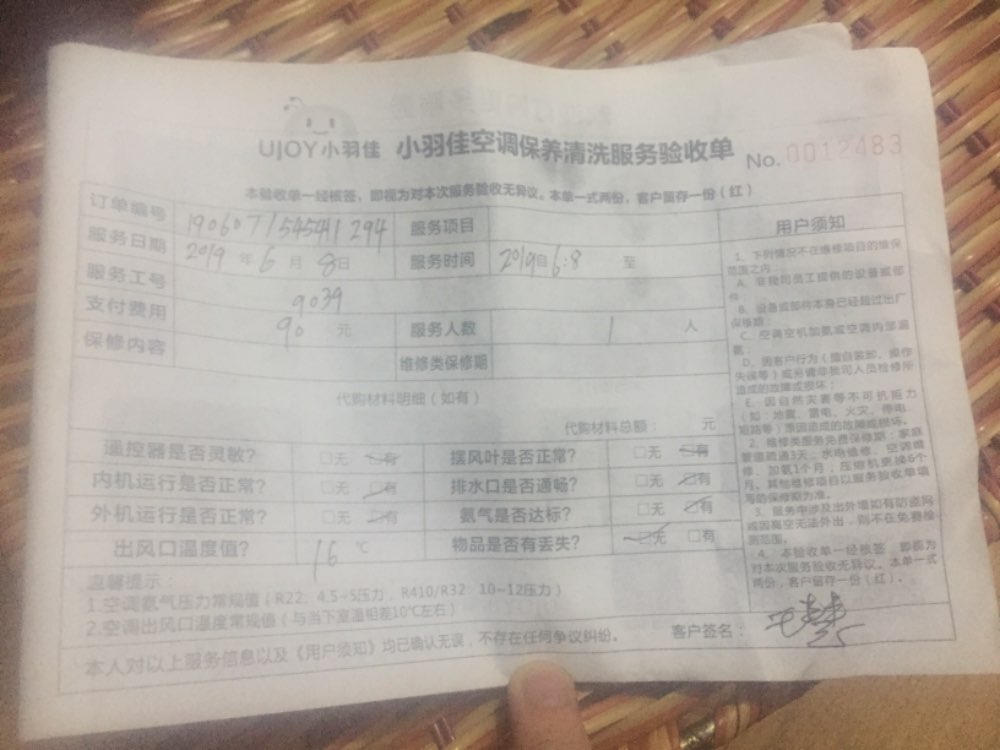 UJOY小羽佳 小羽佳空调保养清洗服务验收单 No. 0012483
本验收单一经核签，即视为对本次服务验收无异议。本单一式两份，客户留存一份（红）
订单编号 190607154541294 服务项目
服务日期 2019 年 6 月 8 日 服务时间 2019自6:8 至
服务工号 9039
支付费用 90 元 服务人数 1 人
保修内容 维修类保修期
代购材料明细（如有）
代购材料总额： 元
遥控器是否灵敏？ 口无 口有 摆风叶是否正常？ 口无 口有
内机运行是否正常？ 口无 口有 排水口是否通畅？ 口无 口有
外机运行是否正常？ 口无 口有 氨气是否达标？ 口无 口有
出风口温度值？ 16 ℃ 物品是否有丢失？ 口无 口有
温馨提示：
1.空调氨气压力常规值（R22：4.5~5压力，R410/R32：10~12压力）
2.空调出风口温度常规值（与当下室温相差10℃左右）
本人对以上服务信息以及《用户须知》均已确认无误，不存在任何争议纠纷。 客户签名：
用户须知
1、下列情况不在维修项目的维保
范围之内：
A、非我司员工提供的设备或部
件；
B、设备或部件本身已经超过出厂
保修期；
C、空调空机加氨或空调内部漏
氨；
D、因客户行为（擅自装卸、操作
失误等）或另请非我司人员检修所
造成的故障或损坏；
E、因自然灾害等不可抗拒力
（如：地震、雷电、火灾、停电、
短路等）原因造成的故障或损坏。
2、维修类服务免费保修期：家庭
管道疏通3天，水电维修、空调维
修、加氨1个月，压缩机更换6个
月。其他维修项目以服务验收单填
写的保修期为准。
3、服务中涉及出外墙如有防盗网
或因高空无法外出，则不在免费检
测范围。
4、本验收单一经核签，即视为
对本次服务验收无异议。本单一式
两份，客户留存一份（红）。